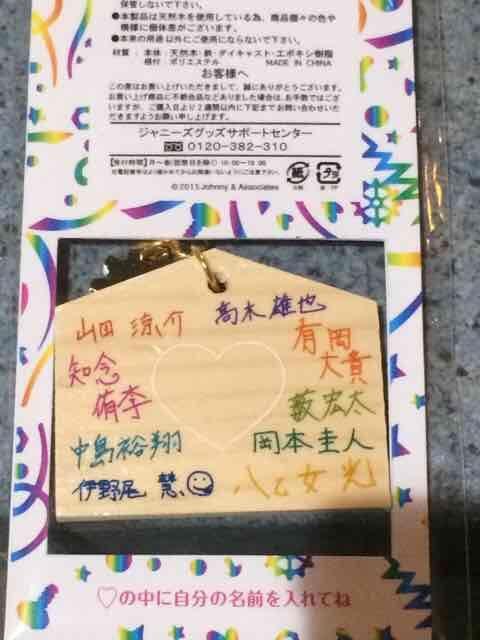 保管しないで下さい。
●本製品は天然木を使用している為、商品個々の色や
模様に個体差がございます。
●本来の用途以外にご使用にならないで下さい。
材質：本体：天然木・鉄・ダイキャスト・エポキシ樹脂
根付：ポリエステル MADE IN CHINA
お客様へ
この度はお買い上げいただきまして、誠にありがとうございます。
お買い上げ商品に不都合品などありました場合は、お手数ではござ
いますが、ご購入日より2週間以内に下記までお問い合わせいた
だきますようお願い申し上げます。
ジャニーズグッズサポートセンター
0120-382-310
【受付時間】月～金(祝祭日を除く) 10:00～18:00
紙
プラ
© 2015 Johnny & Associates
山田 涼介
髙木雄也
知念
侑李
有岡
大貴
薮宏太
中島裕翔
岡本圭人
伊野尾 慧
八乙女 光
♡の中に自分の名前を入れてね